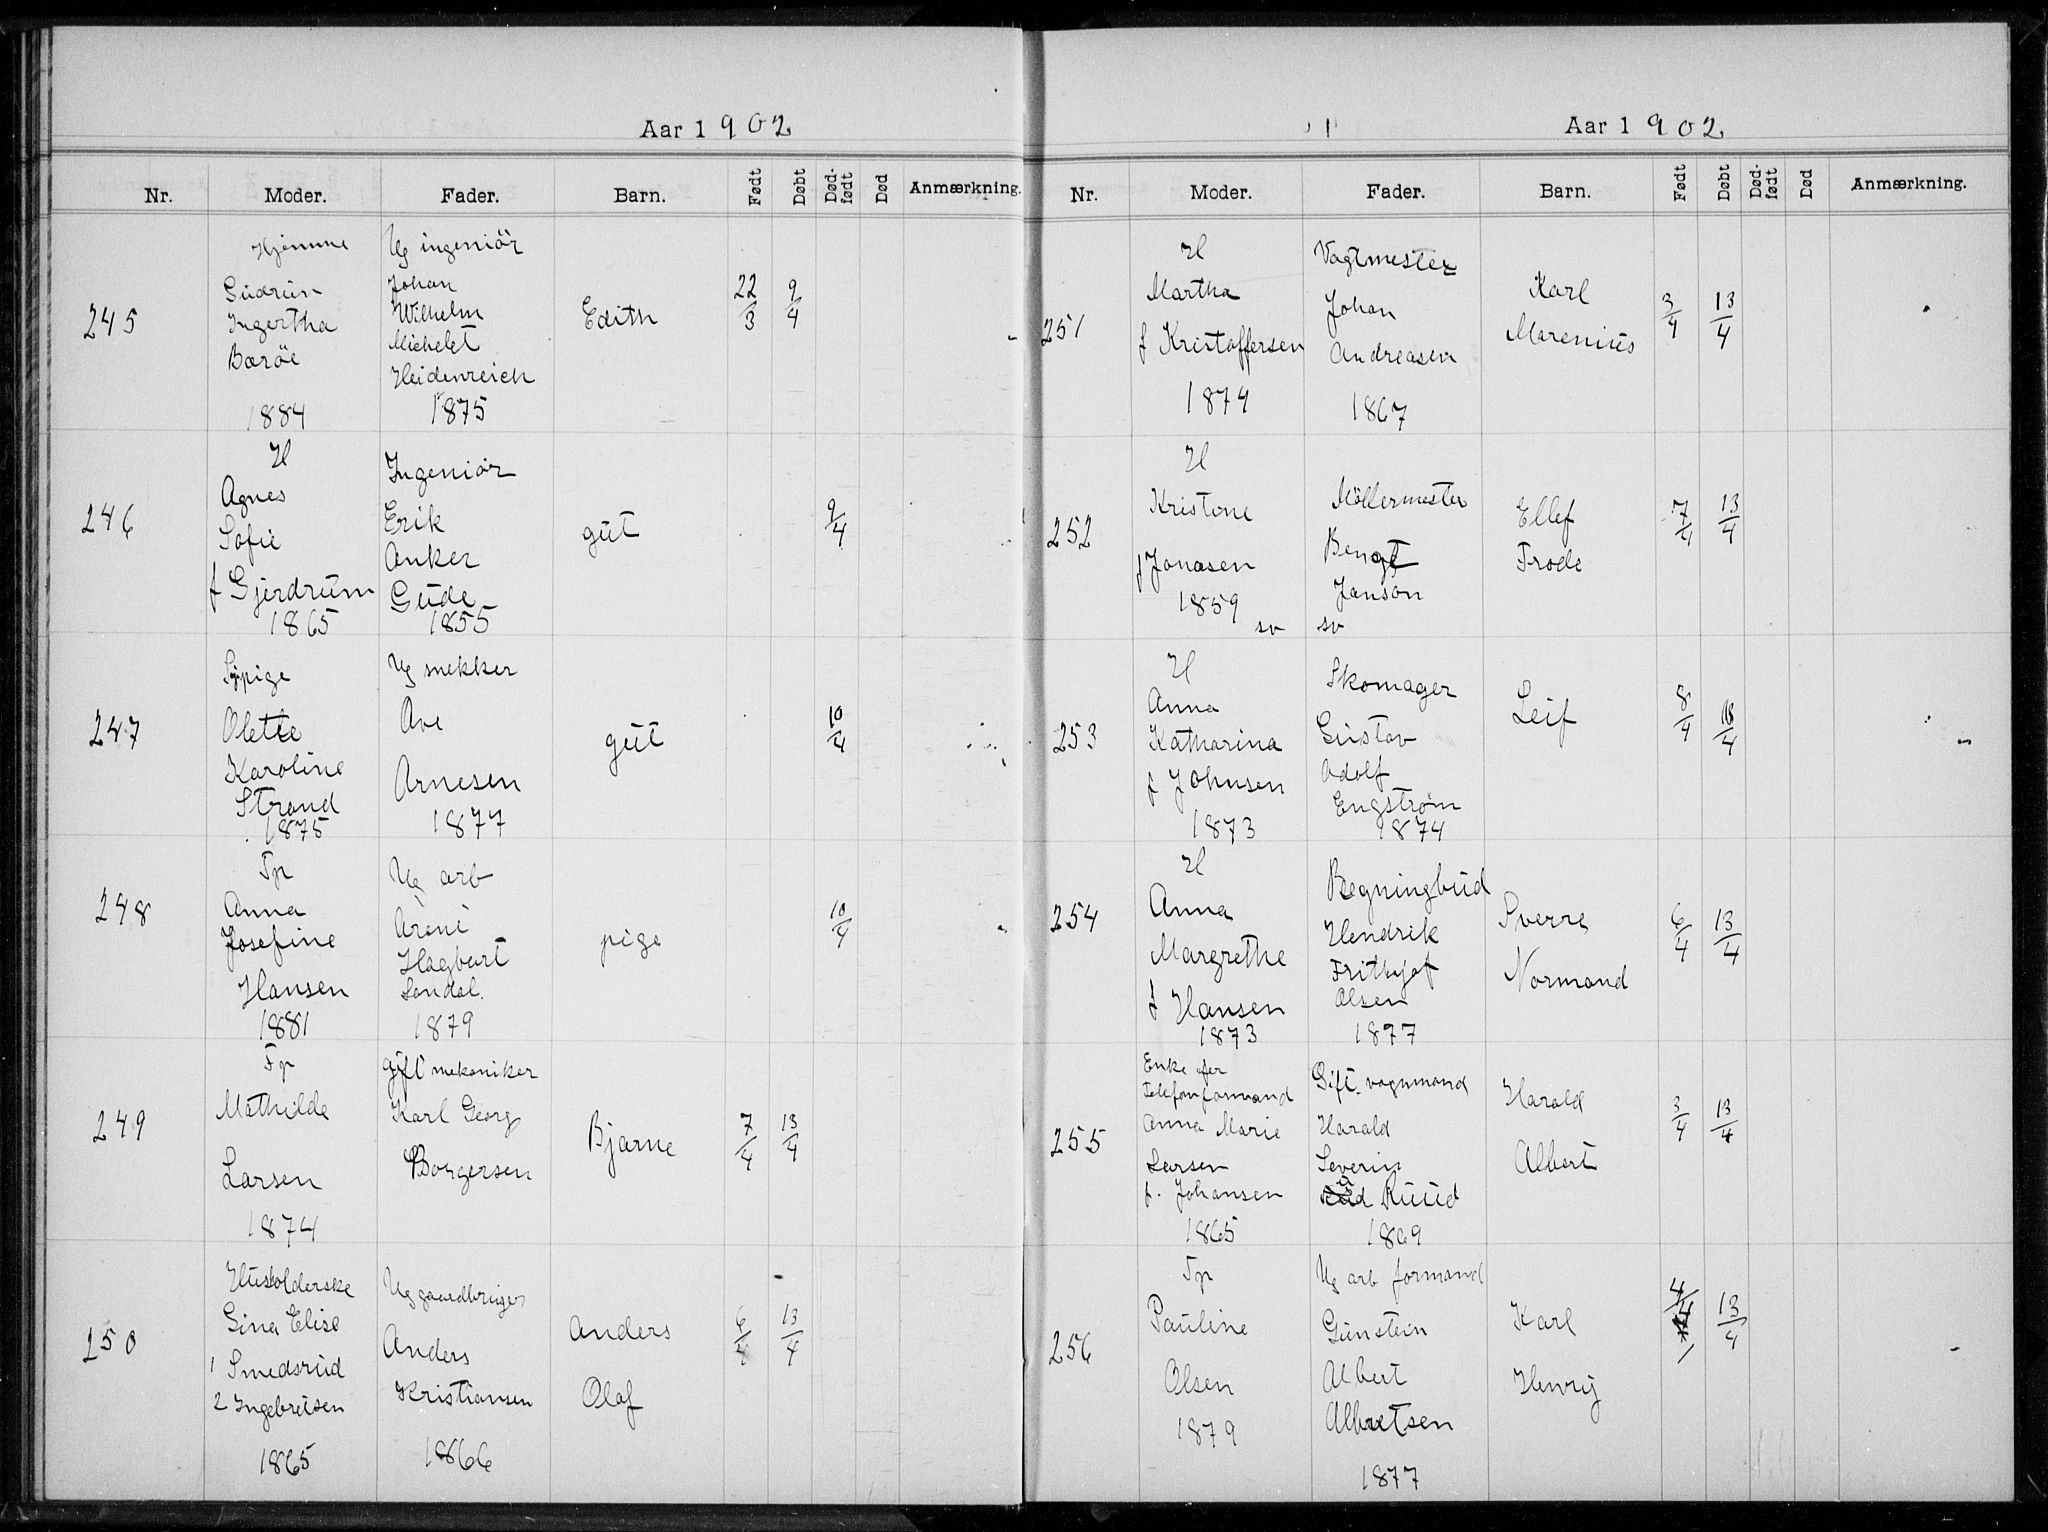 Aar 1902
Nr. Moder. Fader. Barn. Født Døbt Død-født Død Anmærkning.
245
Hjemme
Gudrun
Ingertha
Barøe
1884
Ug ingeniör
Johan
Wilhelm
Michelet
Heidenreich
1875
Edith
22/3 9/4
246
H
Agnes
Sofie
f Gjerdrum
1865
Ingeniör
Erik
Anker
Gude
1855
gut
9/4
247
Sypige
Olette
Karoline
Strand
1875
Ug snekker
Ave
Arnesen
1877
gut
10/4
248
Tp
Anna
Josefine
Hansen
1881
Ug arb
Arent
Hagbart
Sandal.
1879
pige
10/4
249
Fp
Mathilde
Larsen
1874
gift mekaniker
Karl Georg
Borgersen
Bjarne
7/4 13/4
250
Husholderske
Gina Elise
1 Smedsrud
2 Ingebretsen
1865
Ug gaardbruger
Anders
Kristiansen
1866
Anders
Olaf
6/4 13/4
Aar 1902
Nr. Moder. Fader. Barn. Født Døbt Død-født Død Anmærkning.
251
H
Martha
f Kristoffersen
1874
Vagtmester
Johan
Andreasen
1867
Karl
Marenius
3/4 13/4
252
H
Kristine
f Jonasen
1859
sv
Möllermester
Bengt
Janson
sv
Ellef
Frode
7/4 13/4
253
H
Anna
Katharina
f Johnsen
1873
Skomager
Gustav
Adolf
Engstrøm
1874
Leif
8/4
254
H
Anna
Margrethe
f Hansen
1873
Regningbud
Hendrik
Frithjof
Olsen
1877
Sverre
Normand
6/4 13/4
255
Enke efter
Telefonformand
Anna Marie
Larsen
f. Johansen
1865
Gift vognmand
Harald
Severin
Ruud
1869
Harald
Albert
3/4 13/4
256
Tp
Pauline
Olsen
1879
Ug arb formand
Gunstein
Albert
Albretsen
1877
Karl
Henry
4/4 13/4